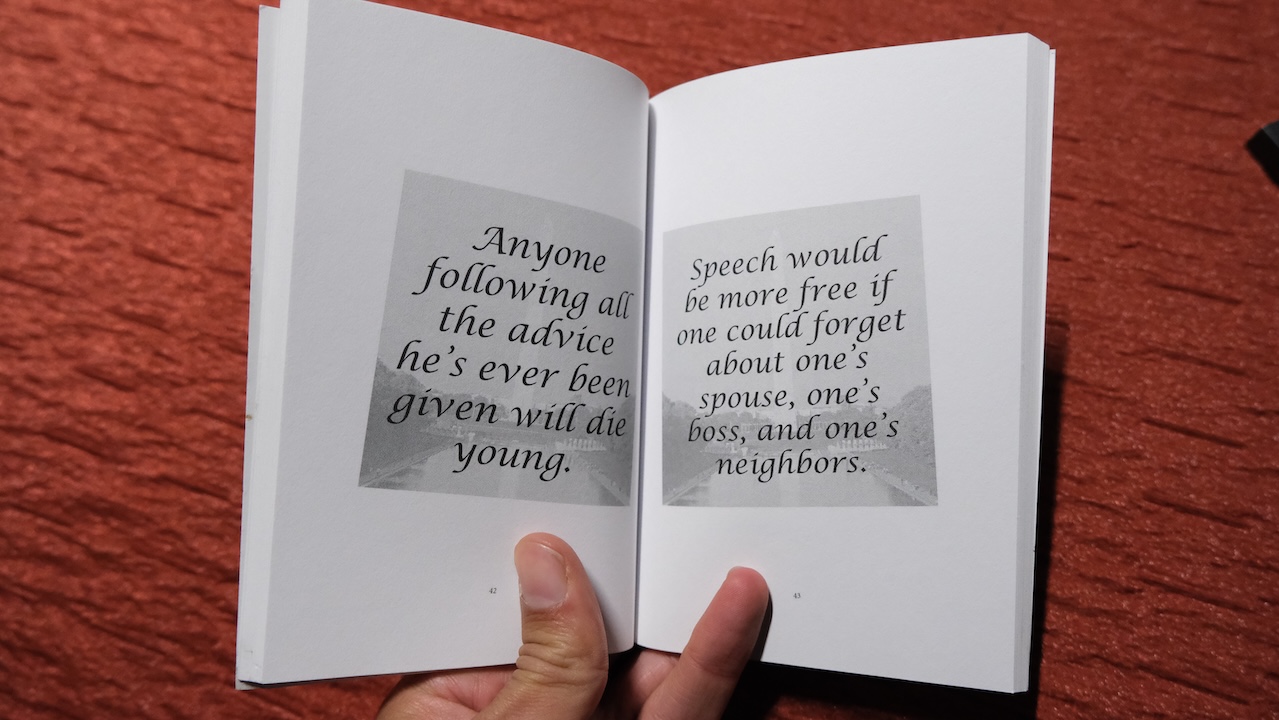 Anyone
following all
the advice
he's ever been
given will die
young.
42
Speech would
be more free if
one could forget
about one's
spouse, one's
boss, and one's
neighbors.
43